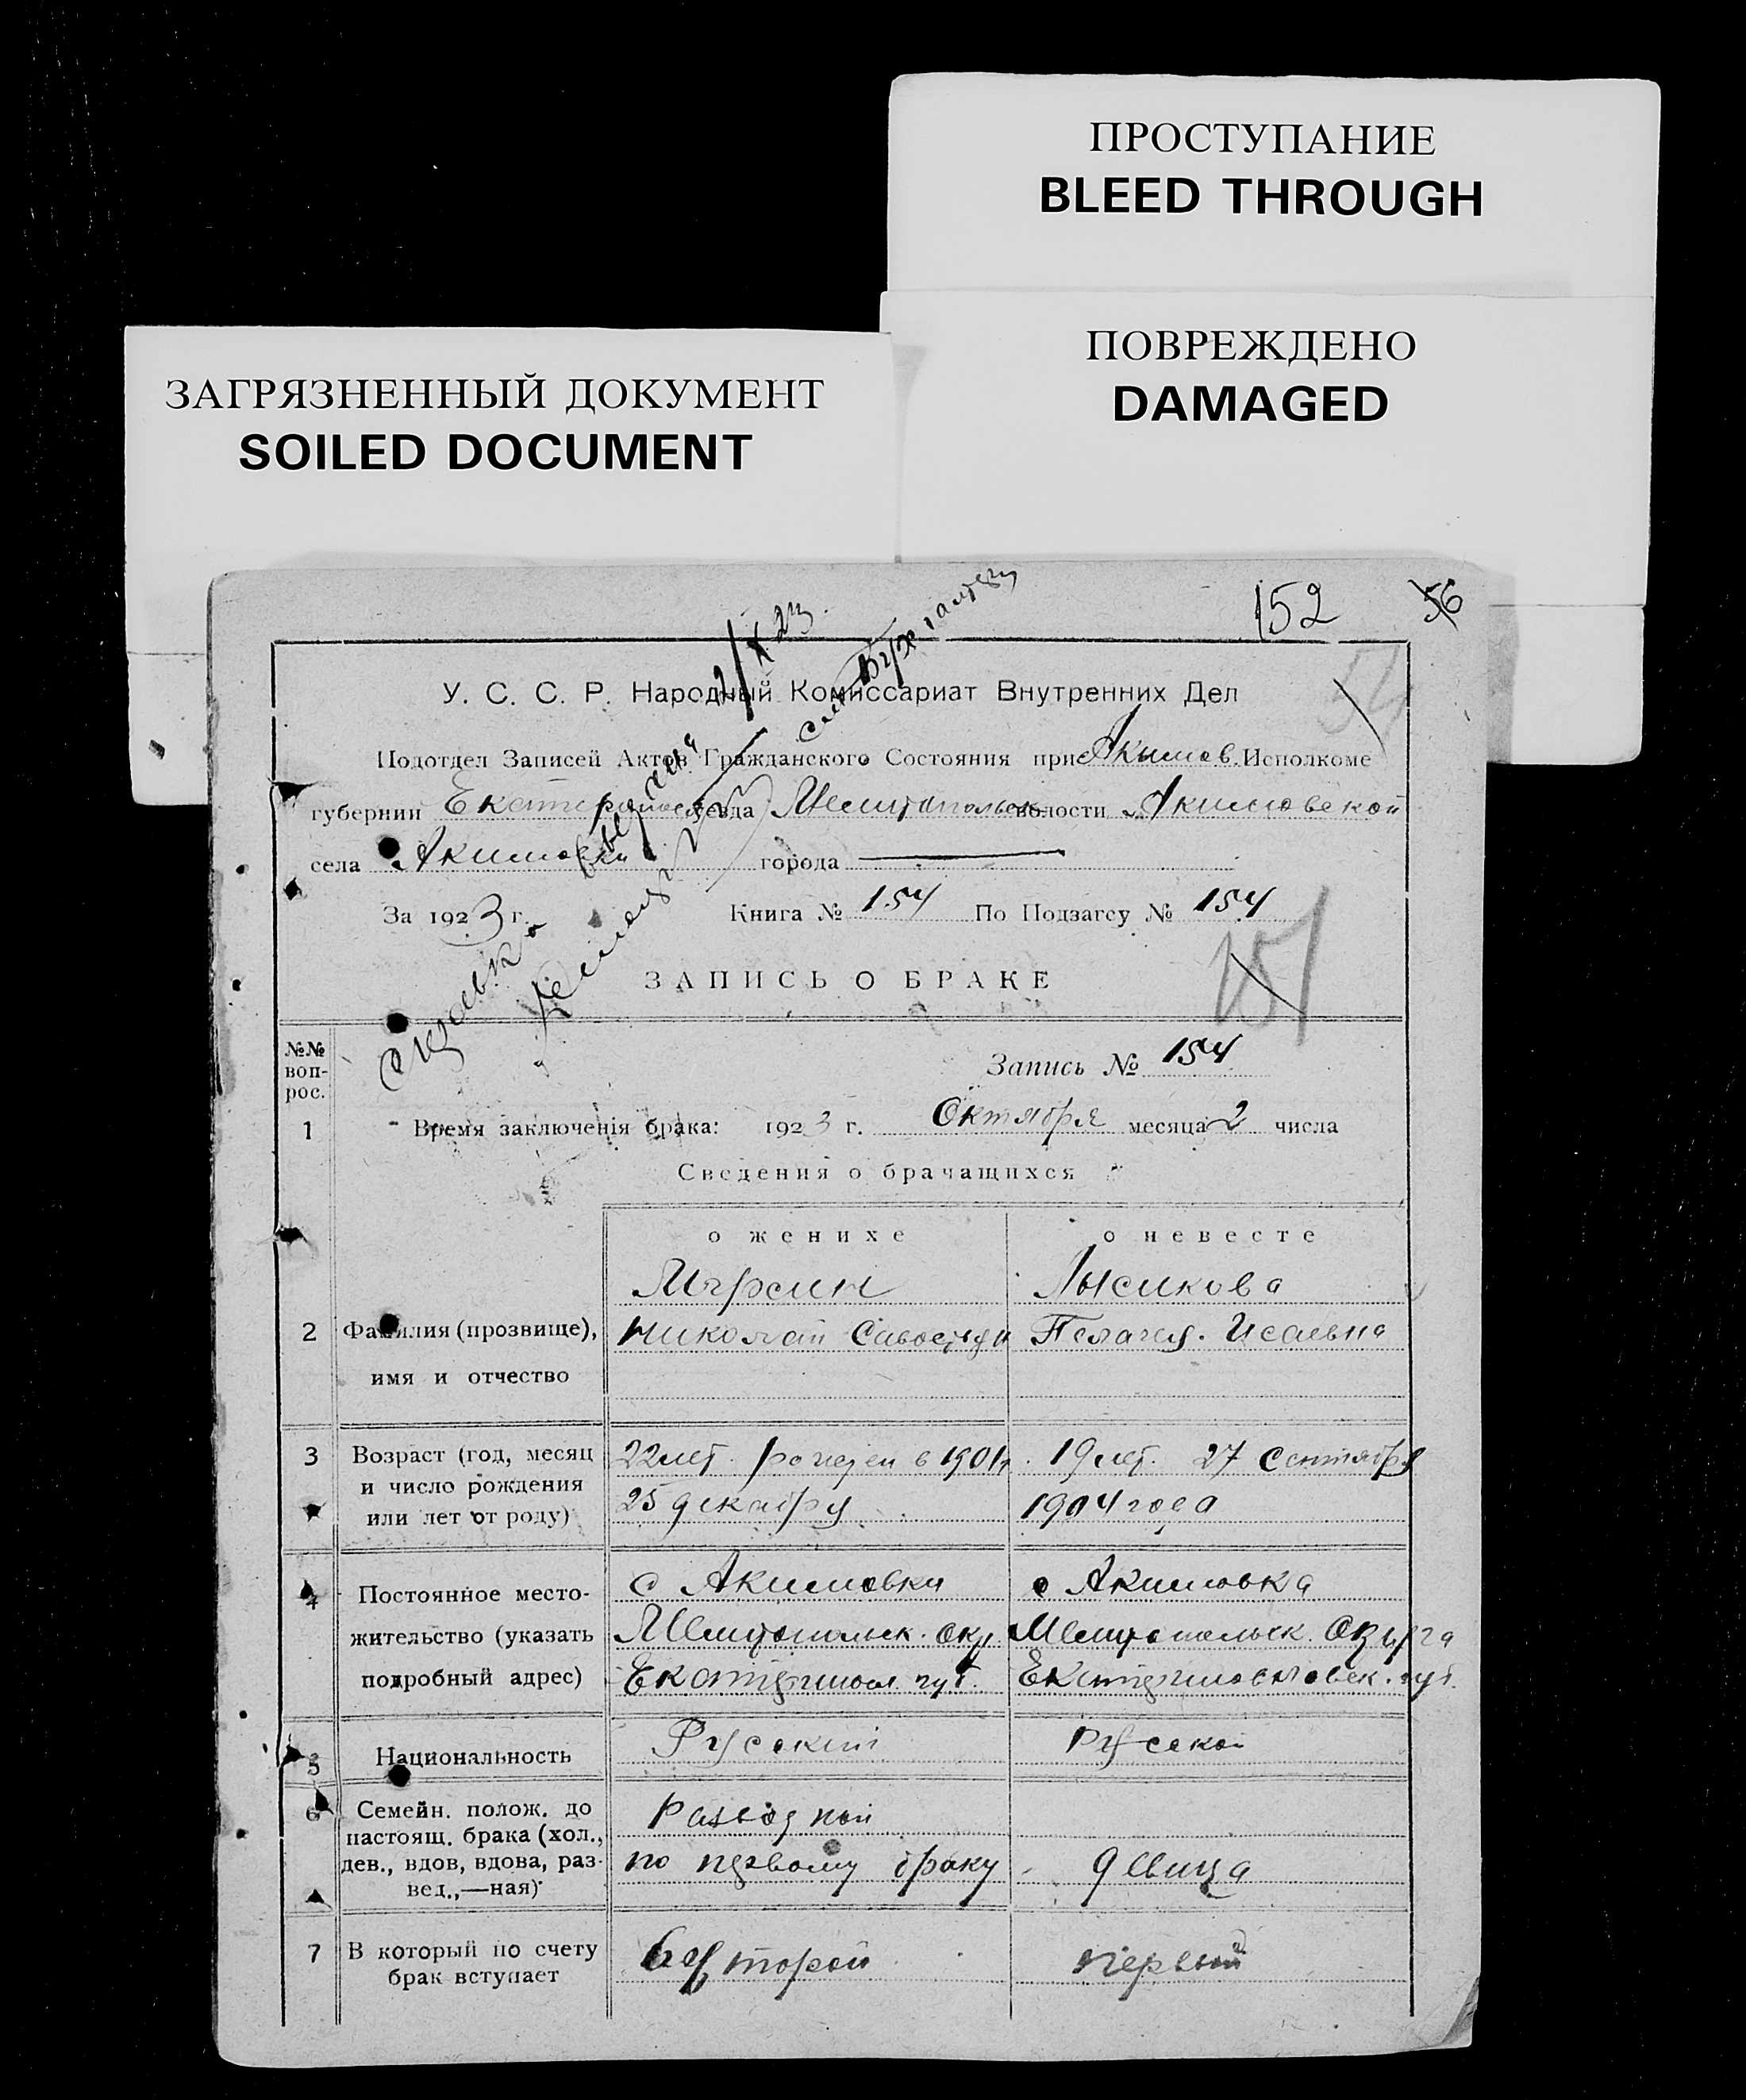 ПРОСТУПАНИЕ
BLEED THROUGH
ПОВРЕЖДЕНО
DAMAGED
ЗАГРЯЗНЕННЫЙ ДОКУМЕНТ
SOILED DOCUMENT
152 56
2/X 23
У. С. С. Р. Народный Комиссариат Внутренних Дел
54
Подотдел Записей Актов Гражданского Состояния при Акимов. Исполкоме
губернии Екатеринослав уезда Мелитопольск волости Акимовской
села Акимовки города
За 1923 г. Книга № 154 По Подзагсу № 154
151
Справка выдана
ЗАПИСЬ О БРАКЕ
№№ воп-рос.
Запись № 154
1 Время заключенія брака: 1923 г. Октября месяца 2 числа
Сведения о брачащихся
о женихе о невесте
Лысикова
2 Фамилия (прозвище), Николай Пелагея. Исаевна
имя и отчество
3 Возраст (год, месяц 22 лет. рожден в 1901 г. 19 лет. 27 Сентября
и число рождения 25 декабря 1904 года
или лет от роду)
4 Постоянное место- с Акимовки с Акимовка
жительство (указать Мелитопольск. окр. Мелитопольск. Округа
подробный адрес) Екатеринол. губ. Екатеринославск. губ.
5 Национальность Русский Руской
6 Семейн. полож. до Разводной
настоящ. брака (хол.,
дев., вдов, вдова, раз- по первому браку девица
вед.,—ная)
7 В который по счету второй первый
брак вступает